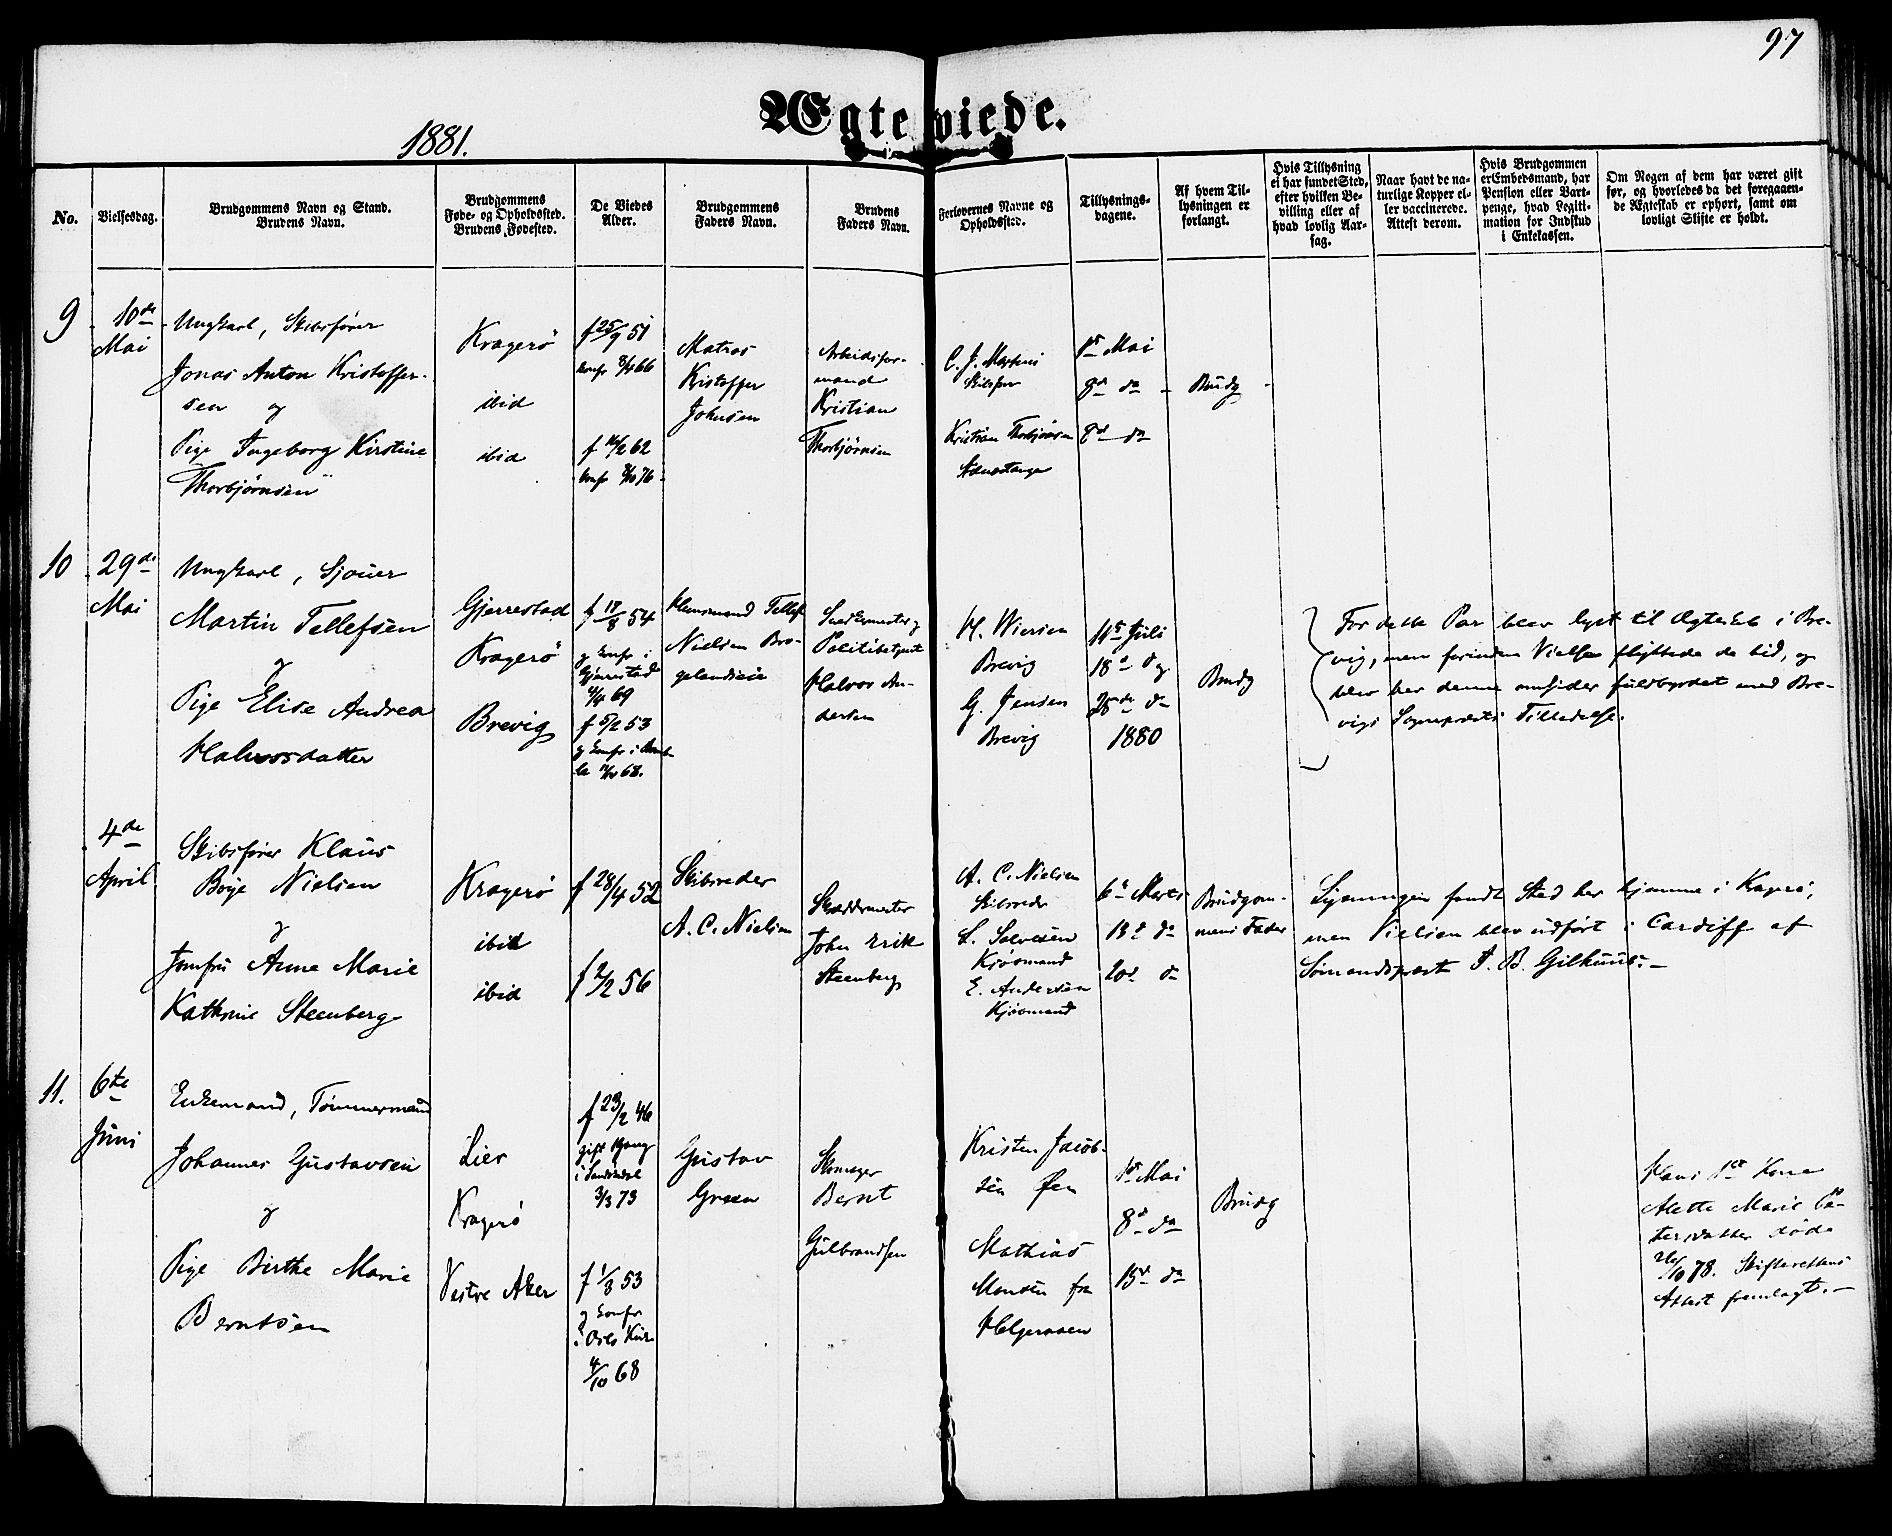 97
Ægteviede.
1881.
No.
Vielsesdag.
Brudgommens Navn og Stand.
Brudens Navn.
Brudgommens
Føde- og Opholdssted.
Brudens Fødested.
De Viedes
Alder.
Brudgommens
Faders Navn.
Brudens
Faders Navn.
Forlovernes Navne og
Opholdssted.
Tillysnings-
dagene.
Af hvem Til-
lysningen er
forlangt.
Hvis Tillysning
ei har fundet Sted,
efter hvilken Be-
villing eller af
hvad lovlig Aar-
sag.
Naar havt de na-
turlige Kopper el-
ler vaccinerede.
Attest derom.
Hvis Brudgommen
er Embedsmand, har
Pension eller Vart-
penge, hvad Legiti-
mation for Indskud
i Enkekassen.
Om Nogen af dem har været gift
før, og hvorledes da det foregaaen-
de Ægteskab er ophørt, samt om
lovligt Skifte er holdt.
9
10de
Mai
Ungkarl, Skibsfører
Jonas Anton Kristoffer-
sen og
Pige Ingeborg Kirstine
Thorbjørnsen
Kragerø
ibid
ibid
f 25/9 51
konf 66
f 62
konf 76
Matros
Kristoffer
Johnsen
Arbeidsfor-
mand
Kristian
Thorbjørnsen
C. J. Martens
Kristian Thorbjørnsen
1st Mai
8de do
8de do
Brudg
10
29de
Mai
Ungkarl, Sjouer
Martin Tellefsen
og
Pige Elise Andrea
Halvorsdatter
Gjerrestad
Kragerø
Brevig
f 18/8 54
og konf i
Gjerrestad
69
f 5/2 53
og konf i Bamb-
le 68.
Huusmand Tellef
Nielsen Bro-
gelandseie
Snedkermester og
Politibetjent
Halvor An-
dersen
H. Wiersen
Brevig
G. Jensen
Brevig
11te Juli
18de do
25de do
1880
Brudg
For dette Par blev lyst til Ægteskab i Bre-
vig, men forinden Vielsen flyttede de hid, og
blev her denne omsider fuldbyrdet med Bre-
vigs Sognepræsts Tilladelse.
4de
April
Skibsfører Klaus
Boye Nielsen
og
Jomfru Anne Marie
Kathrine Steenberg
Kragerø
ibid
ibid
f 28/4 52
f 2/2 56
Skibsreder
A. C. Nielsen
Skræddermester
John Erik
Steenberg
A. C. Nielsen
Skibsreder
L. Salvesen
Kjøbmand
E. Andersen
Kjøbmand
6te Marts
13de do
20de do
Brudgom-
mens Fader
Lysningen fandt Sted her hjemme i Kragerø,
men Vielsen blev udført i Cardiff af
Sømandspræst J. B. Gilhuus. —
11.
6te
Juni
Enkemand, Tømmermand
Johannes Gustavsen
og
Pige Birthe Marie
Berntsen
Lier
Kragerø
Vestre Aker
f 23/2 46
gift 1. Gang
i
3/3 73
f 1/8 53
og konf
i Oslo Kirke
4/10 68
Gustav
Green
Skomager
Bernt
Gulbrandsen
Kristen Jacob-
sen Øen
Mathias
Monsen fra
Helgeroaen
1st Mai
8de do
15de do
Brudg
Hans 1st Kone
Alette Marie Pe-
tersdatter døde
26/10 78. Skifterettens
Attest fremlagt. —